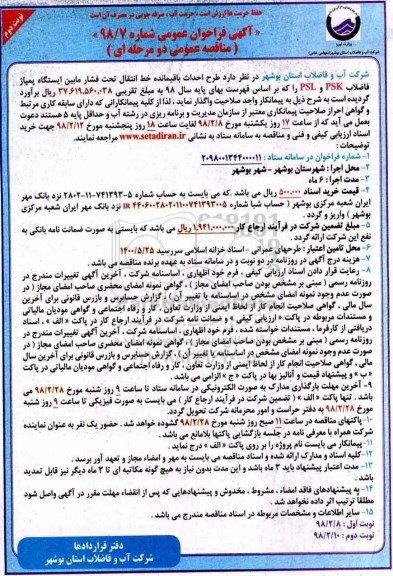 حفظ حرمت ها ارزش است، حرمت آب، صرفه جویی در مصرف آن است
نوبت دوم
« آگهی فراخوان عمومی شماره ۹۸/۷ »
( مناقصه عمومی دو مرحله ای )
وزارت نیرو
شرکت آب و فاضلاب استان بوشهر (سهامی خاص)
شرکت آب و فاضلاب استان بوشهر در نظر دارد طرح احداث باقیمانده خط انتقال تحت فشار مابین ایستگاه پمپاژ
فاضلاب PSK و PSL را که بر اساس فهرست بهای پایه سال ۹۸ به مبلغ تقریبی ۳۷,۶۱۹,۵۶۰,۰۳۸ ریال برآورد
گردیده است به شرح ذیل به پیمانکار واجد صلاحیت واگذار نماید ، لذا از کلیه پیمانکارانی که دارای سابقه کاری مرتبط
و گواهی احراز صلاحیت پیمانکاری معتبر از سازمان مدیریت و برنامه ریزی در رشته آب و حداقل پایه ۵ هستند دعوت
بعمل می آید که از ساعت ۱۷ روز یکشنبه مورخ ۹۸/۲/۸ لغایت ساعت ۱۸ روز پنجشنبه مورخ ۹۸/۲/۱۲ جهت خرید
اسناد ارزیابی کیفی و فنی و مناقصه به سامانه ستاد به نشانی www.setadiran.ir مراجعه نمایند.
توضیحات :
۱- شماره فراخوان در سامانه ستاد : ۲۰۹۸۰۰۱۳۴۴۰۰۰۰۱۱
۲- محل اجرا : شهرستان بوشهر - شهر بوشهر
۳- مدت اجرا : ۶ ماه
۴- قیمت خرید اسناد ۵۰۰,۰۰۰ ریال می باشد .که می بایست به حساب شماره ۵-۷۴۱۳۹۳-۱۱-۲۸۰۲ نزد بانک مهر
ایران شعبه مرکزی بوشهر ( حساب شبا شماره IR ۴۴۰۶۰۰۲۸۰۲۰۱۱۰۰۷۴۱۳۹۳۰۰۵ نزد بانک مهر ایران شعبه مرکزی
بوشهر ) واریز و گردد .
۵- مبلغ تضمین شرکت در فرآیند ارجاع کار ۱,۹۴۱,۰۰۰,۰۰۰ ریال می باشد که بایستی به صورت ضمانت نامه بانکی به
نفع این شرکت ارائه گردد .
۶- محل تامین اعتبار : طرحهای عمرانی - اسناد خزانه اسلامی سررسید ۱۴۰۰/۵/۲۵
۷- هزینه درج آگهی در روزنامه در دو نوبت و در سامانه ستاد به عهده برنده مناقصه می باشد.
۸- رعایت قرار دادن اسناد ارزیابی کیفی ، فرم خود اظهاری ، اساسنامه شرکت ، آخرین آگهی تغییرات مندرج در
روزنامه رسمی ( مبنی بر مشخص بودن صاحب امضای مجاز) ، گواهی نمونه امضای محضری صاحب امضای مجاز ( در
صورت عدم وجود نمونه امضای مشخص در اساسنامه یا تغییر آن) ، گزارش حسابرس و بازرس قانونی برای آخرین
سال مالی ، گواهی صلاحیت انجام کار از لحاظ ایمنی از وزارت تعاون ، کار و رفاه اجتماعی و گواهی مودیان مالیاتی
و مستندات مربوطه در پاکت « ارزیابی کیفی » و ضمانت نامه شرکت در فرآیند ارجاع کار در پاکت « الف » ، اسناد
دریافتی از کارفرما ، مستندات خواسته شده ، فرم خود اظهاری ، اساسنامه شرکت ، آخرین آگهی تغییرات مندرج در
روزنامه رسمی ( مبنی بر مشخص بودن صاحب امضای مجاز) ، گواهی نمونه امضای محضری صاحب امضای مجاز ( در
صورت عدم وجود نمونه امضای مشخص در اساسنامه یا تغییر آن) ، گزارش حسابرس و بازرس قانونی برای آخرین سال
مالی ، گواهی صلاحیت انجام کار از لحاظ ایمنی از وزارت تعاون ، کار و رفاه اجتماعی و گواهی مودیان مالیاتی در پاکت
« ب » و پیشنهاد قیمت و آنالیز بها در پاکت « ج » الزامی می باشد .
۹- آخرین مهلت بارگذاری مدارک به صورت الکترونیکی در سامانه ستاد تا ساعت ۹ روز شنبه مورخ ۹۸/۲/۲۸ می
باشد . تنها پاکت « الف » ( تضمین شرکت در فرآیند ارجاع کار ) می بایست به صورت فیزیکی تا ساعت ۹ روز شنبه
مورخ ۹۸/۲/۲۸ به دفتر حراست و امور محرمانه شرکت تحویل گردد.
۱۰- پاکتهای مناقصه در ساعت ۱۱ صبح روز شنبه مورخ ۹۸/۲/۲۸ گشوده خواهد شد . حضور یک نفر به عنوان نماینده
شرکت همراه با معرفی نامه در جلسه بازگشایی پاکتها بلامانع می باشد .
۱۱- پیمانکار می بایست نام پروژه را بر روی پاکت « الف » درج نماید .
۱۲- کلیه اسناد و مدارک ارائه شده و اسناد مناقصه می بایست به مهر و امضاء مجاز و تعهد آور برسد .
۱۳- مدت اعتبار پیشنهاد باید ۳ ماه باشد و این مدت بدون نیاز به هیچ گونه مکاتبه ای تا ۳ ماه دیگر نیز قابل تمدید
باشد .
۱۴- به پیشنهادهای فاقد امضاء ، مشروط ، مخدوش و پیشنهادهایی که پس از انقضاء مهلت مقرر در آگهی واصل شود
مطلقا ترتیب اثر داده نخواهد شد .
۱۵- سایر اطلاعات و مشخصات مربوطه در اسناد مناقصه مندرج می باشد .
نوبت اول : ۹۸/۲/۸
نوبت دوم : ۹۸/۲/۱۰
دفتر قراردادها
شرکت آب و فاضلاب استان بوشهر